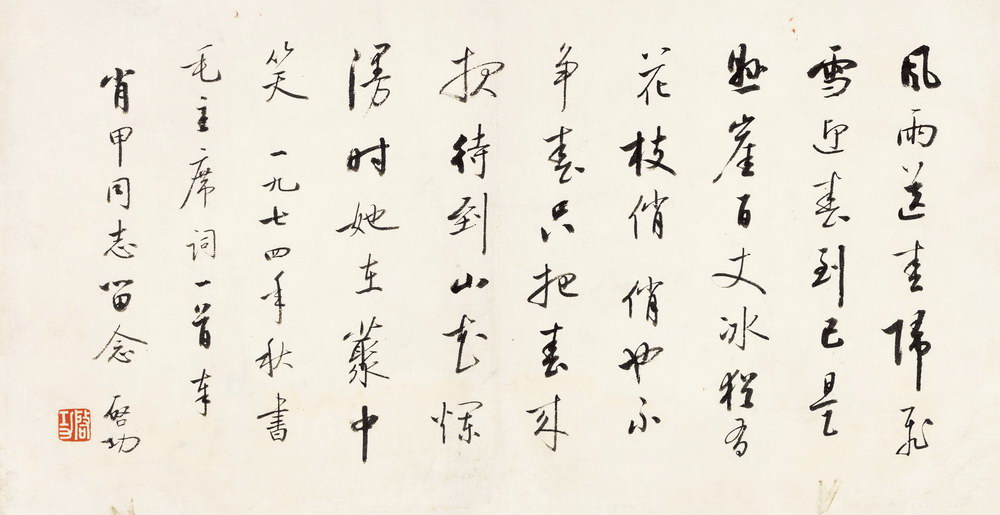 風雨送春歸飛
雪迎春到已是
懸崖百丈冰猶有
花枝俏俏也不
争春只把春来
报待到山花爛
漫时她在藂中
笑 一九七四年秋書
毛主席詞一首奉
肖甲同志留念 啓功
啓功